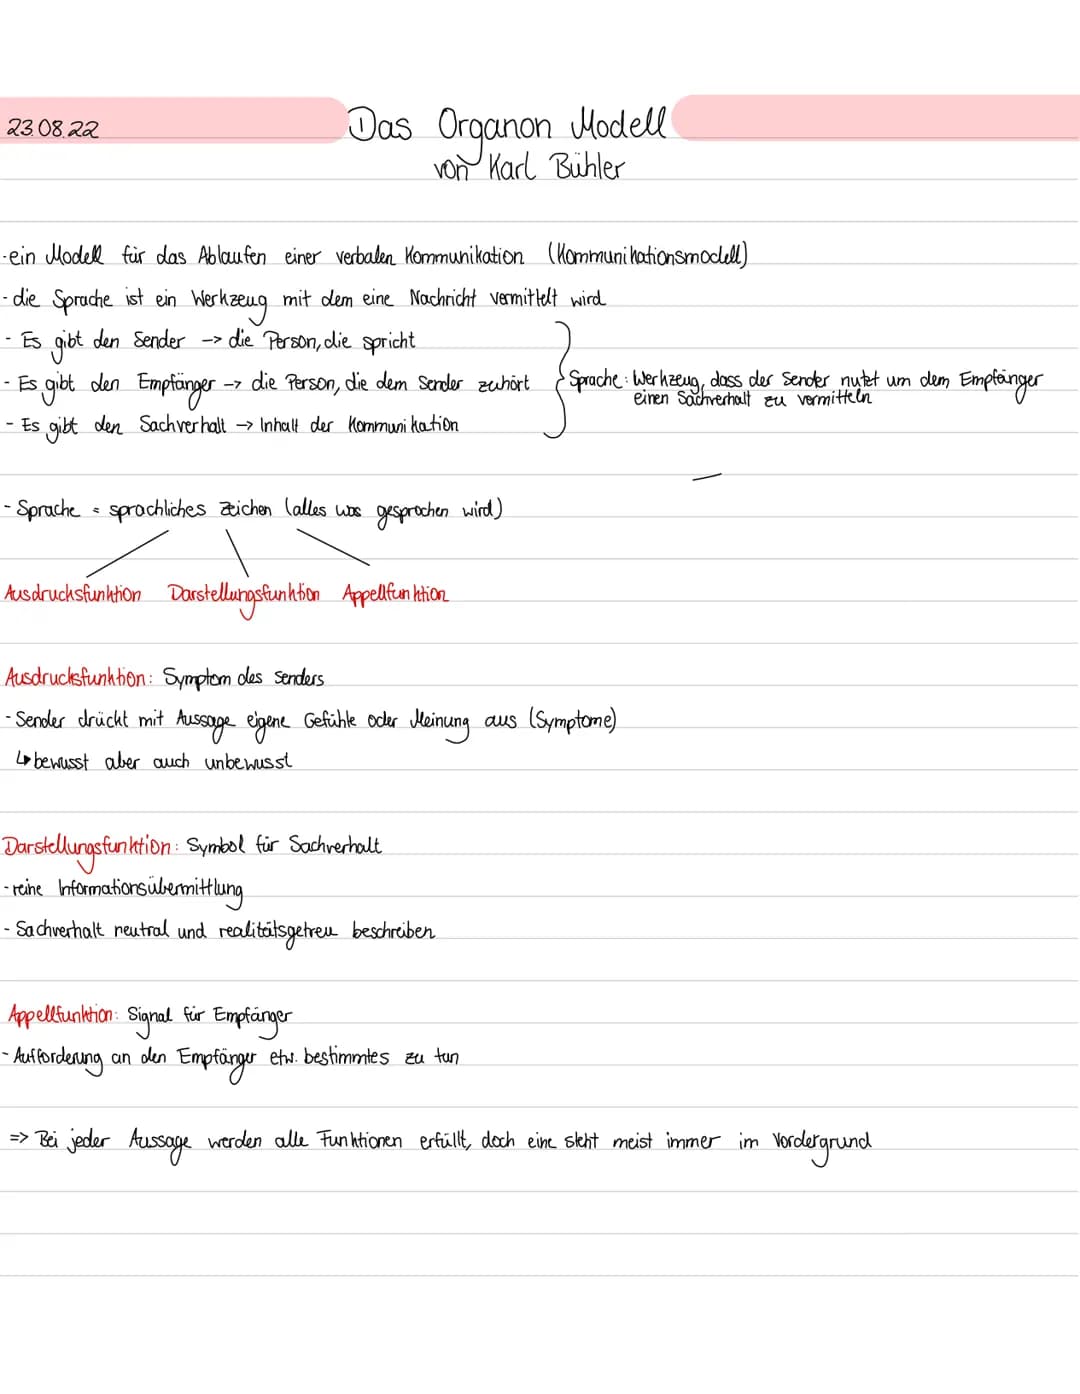 23.08.22
Das Organon Modell
von Karl Bühler
-ein Modell für das Ablaufen einer verbalen Kommunikation (Kommunikationsmodell)
- die Sprache ist ein Werkzeug mit dem eine Nachricht vermittelt wird
- Es gibt den Sender -> die Person, die spricht
- Es gibt den Empfänger -> die Person, die dem Sender zuhört
- Es gibt den Sachverhalt -> Inhalt der Kommunikation
Sprache: Werkzeug, dass der Sender nutzt um dem Empfänger
einen Sachverhalt zu vermitteln
- Sprache = sprachliches Zeichen (alles was gesprochen wird)
Ausdrucksfunktion Darstellungsfunktion Appellfunktion
Ausdrucksfunktion: Symptom des Senders
- Sender drückt mit Aussage eigene Gefühle oder Meinung aus (Symptome)
↳ bewusst aber auch unbewusst
Darstellungsfunktion: Symbol für Sachverhalt
- reine Informationsübermittlung
- Sachverhalt neutral und realitätsgetreu beschreiben
Appellfunktion: Signal für Empfänger
- Aufforderung an den Empfänger etw. bestimmtes zu tun
=> Bei jeder Aussage werden alle Funktionen erfüllt, doch eine steht meist immer im Vordergrund